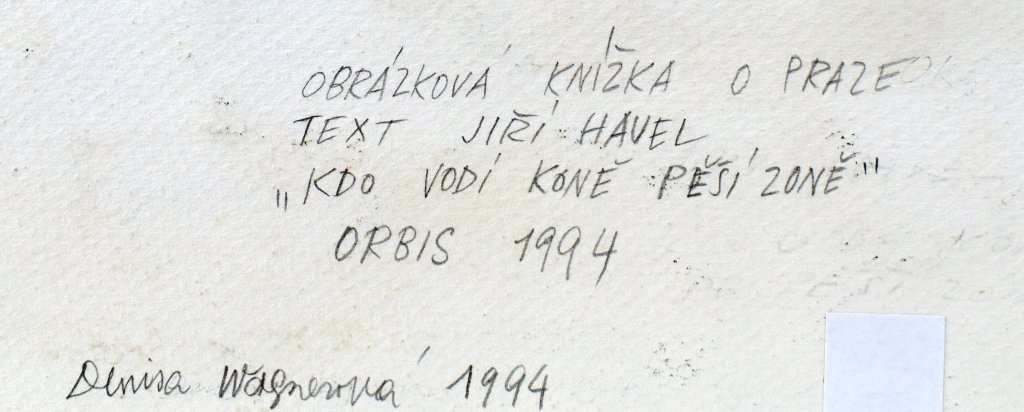 OBRÁZKOVÁ KNÍŽKA O PRAZE
TEXT JIŘÍ HAVEL
„KDO VODÍ KONĚ PĚŠÍ ZONĚ"
ORBIS 1994
Denisa Wagnerová 1994